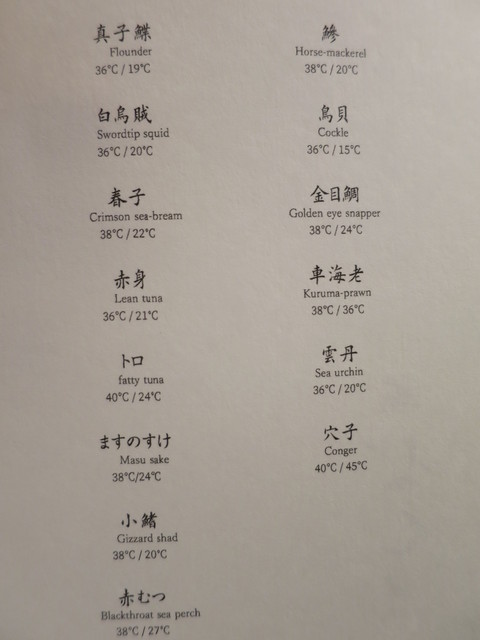 真子鰈
Flounder
36°C / 19°C
白烏賊
Swordtip squid
36°C / 20°C
春子
Crimson sea-bream
38°C / 22°C
赤身
Lean tuna
36°C / 21°C
トロ
fatty tuna
40°C / 24°C
ますのすけ
Masu sake
38°C/24°C
小鰭
Gizzard shad
38°C / 20°C
赤むつ
Blackthroat sea perch
38°C / 27°C
鰺
Horse-mackerel
38°C / 20°C
鳥貝
Cockle
36°C / 15°C
金目鯛
Golden eye snapper
38°C / 24°C
車海老
Kuruma-prawn
38°C / 36°C
雲丹
Sea urchin
36°C / 20°C
穴子
Conger
40°C / 45°C